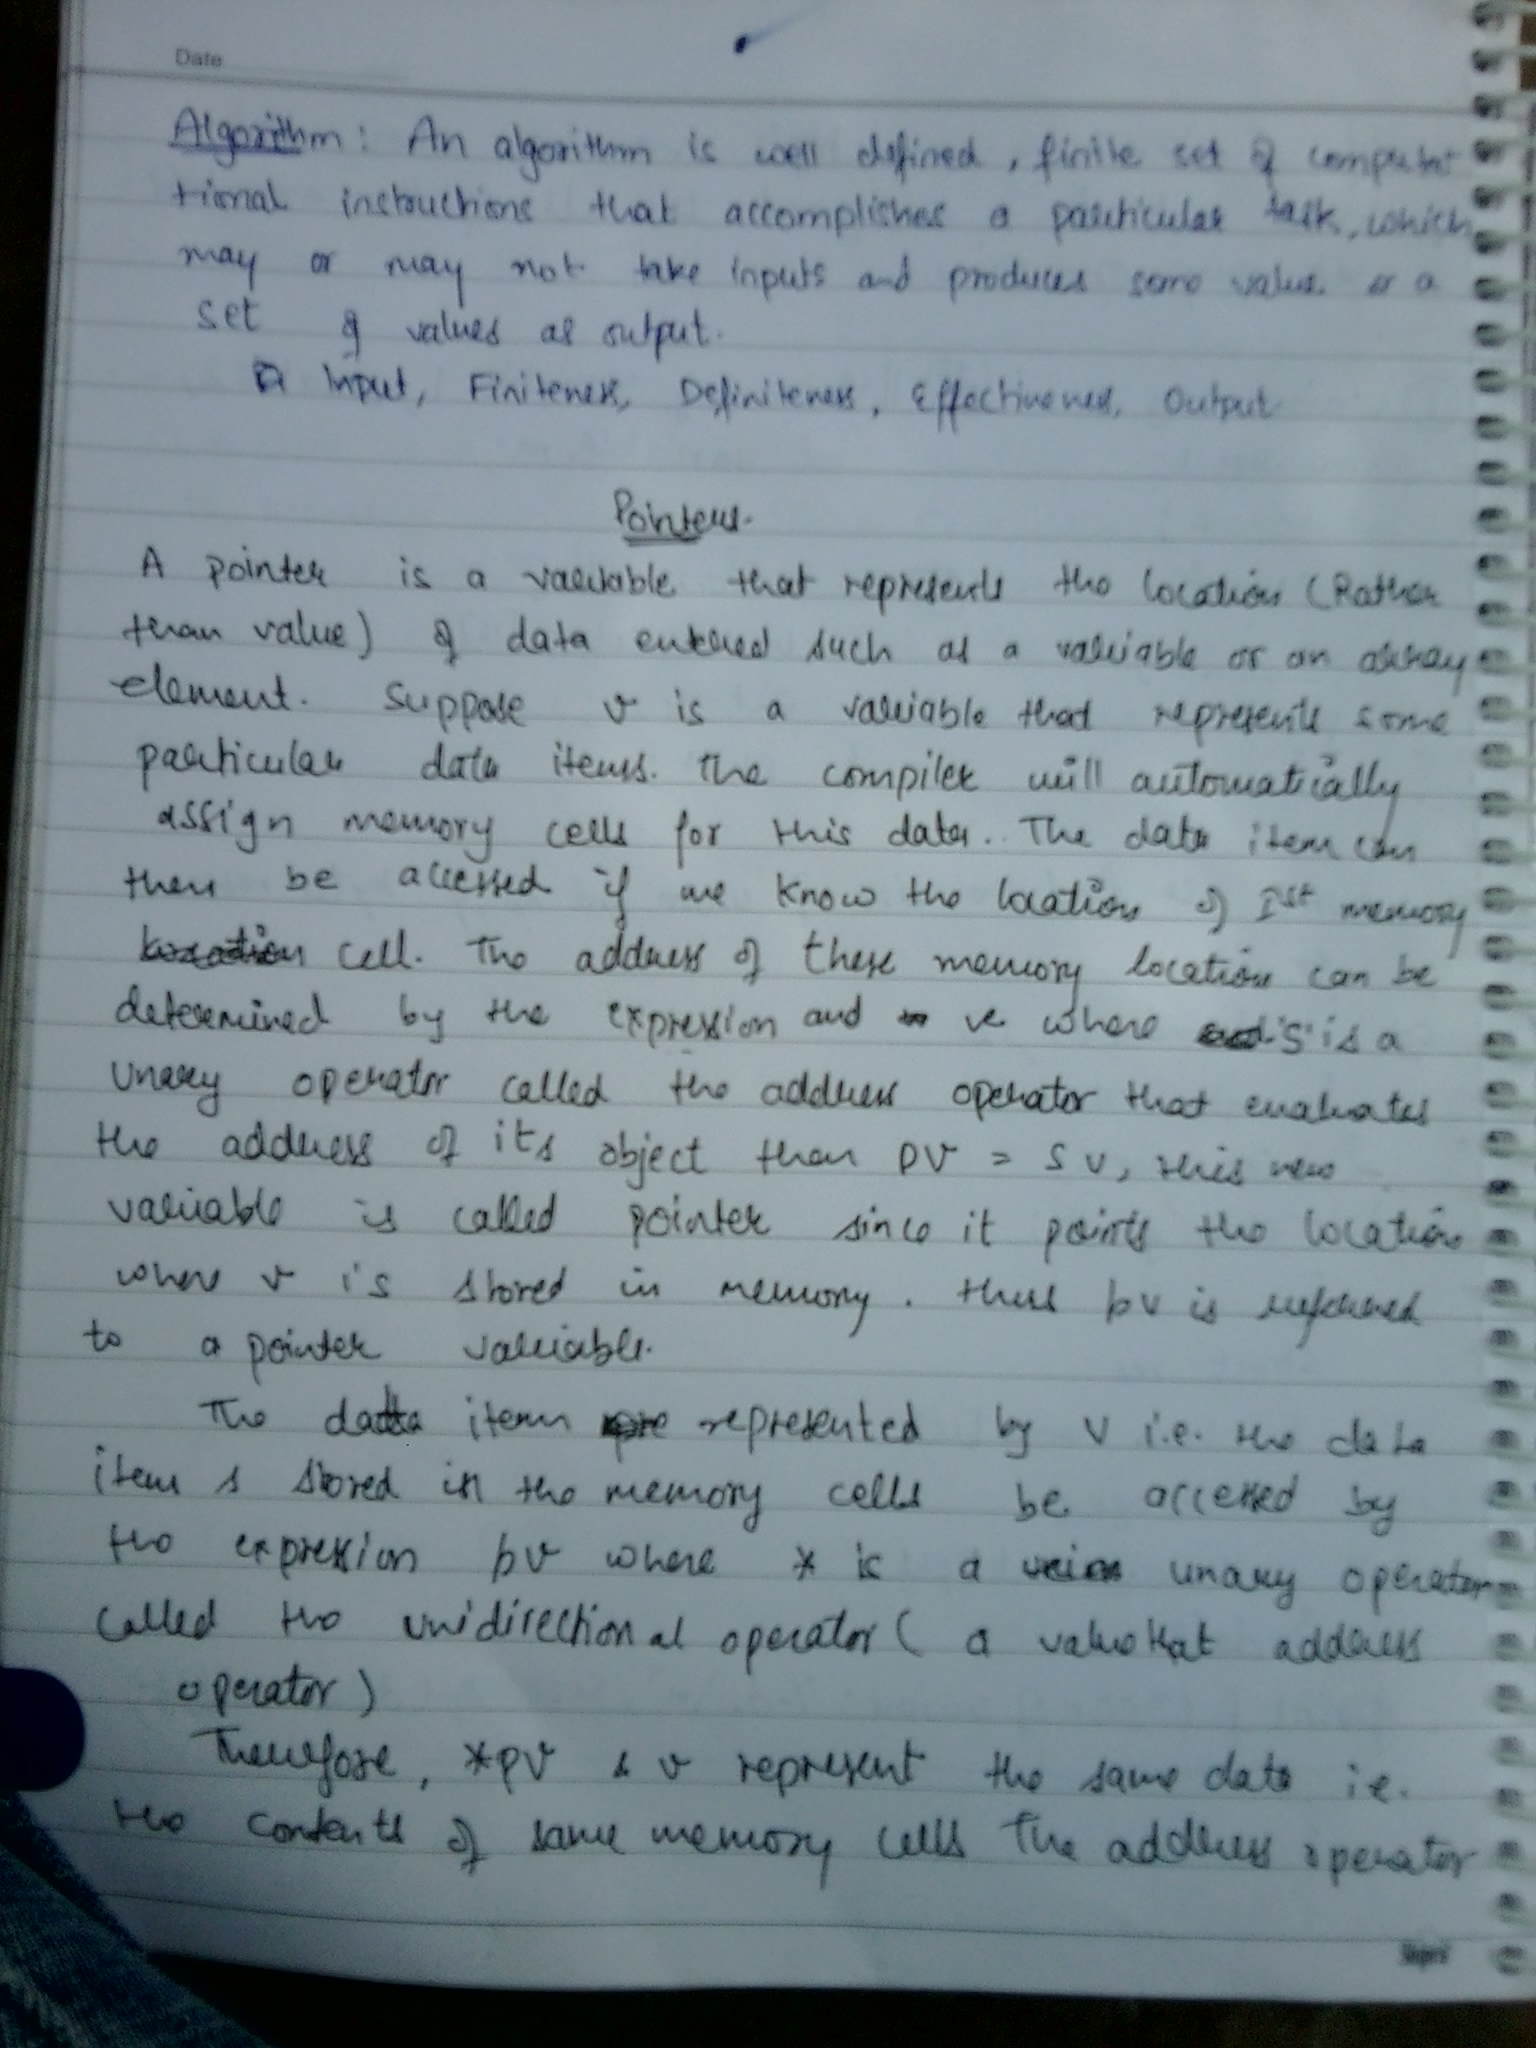 Date
Algorithm: An algorithm is well defined, finite set of computat
tional instructions that accomplishes a particular task, which
may or may not take inputs and produces some value or a
set of values as output.
Input, Finiteness, Definiteness, Effectiveness, Output
Pointers.
A pointer is a variable that represents the location (Rather
than value) of data entered such as a variable or an array
element. Suppose v is a variable that represents some
particular data items. The compiler will automatically
assign memory cells for this data. The data item can
then be accessed if we know the location of Ist memory
location cell. The address of these memory location can be
determined by the expression and ve where 'S' is a
Unary operator called the address operator that evaluates
the address of its object than PV = S v, this new
variable is called pointer since it points the location
where v is stored in memory. thus pv is referred
to a pointer variable.
The data item represented by V i.e. the data
item s stored in the memory cells be accessed by
the expression pv where * is a unary operator
called the unidirectional operator ( a value that address
operator)
Therefore, *pv & v represent the same data i.e.
the contents of same memory cells The address operator